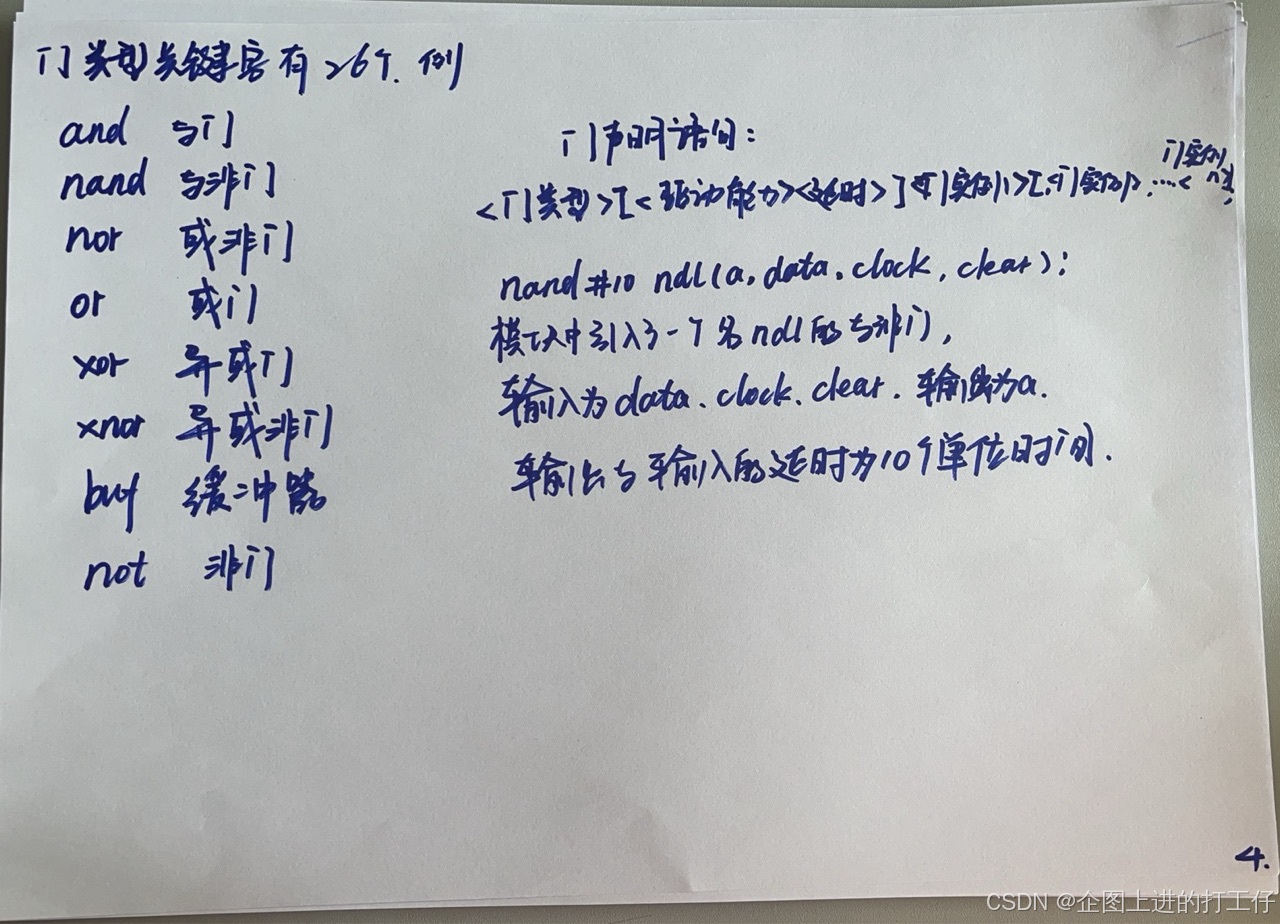 门类型关键字有26个. 例
and 与门
nand 与非门
nor 或非门
or 或门
xor 异或门
xnor 异或非门
buf 缓冲器
not 非门
门声明语句:
<门类型>[<驱动能力><延时>]<门实例1>[,<门实例2>,…<门实例n>];
nand #10 nd1(a, data, clock, clear);
模块中引入了一个名nd1的与非门,
输入为data、clock、clear. 输出为a.
输出与输入的延时为10个单位时间.
4.
CSDN @企图上进的打工仔